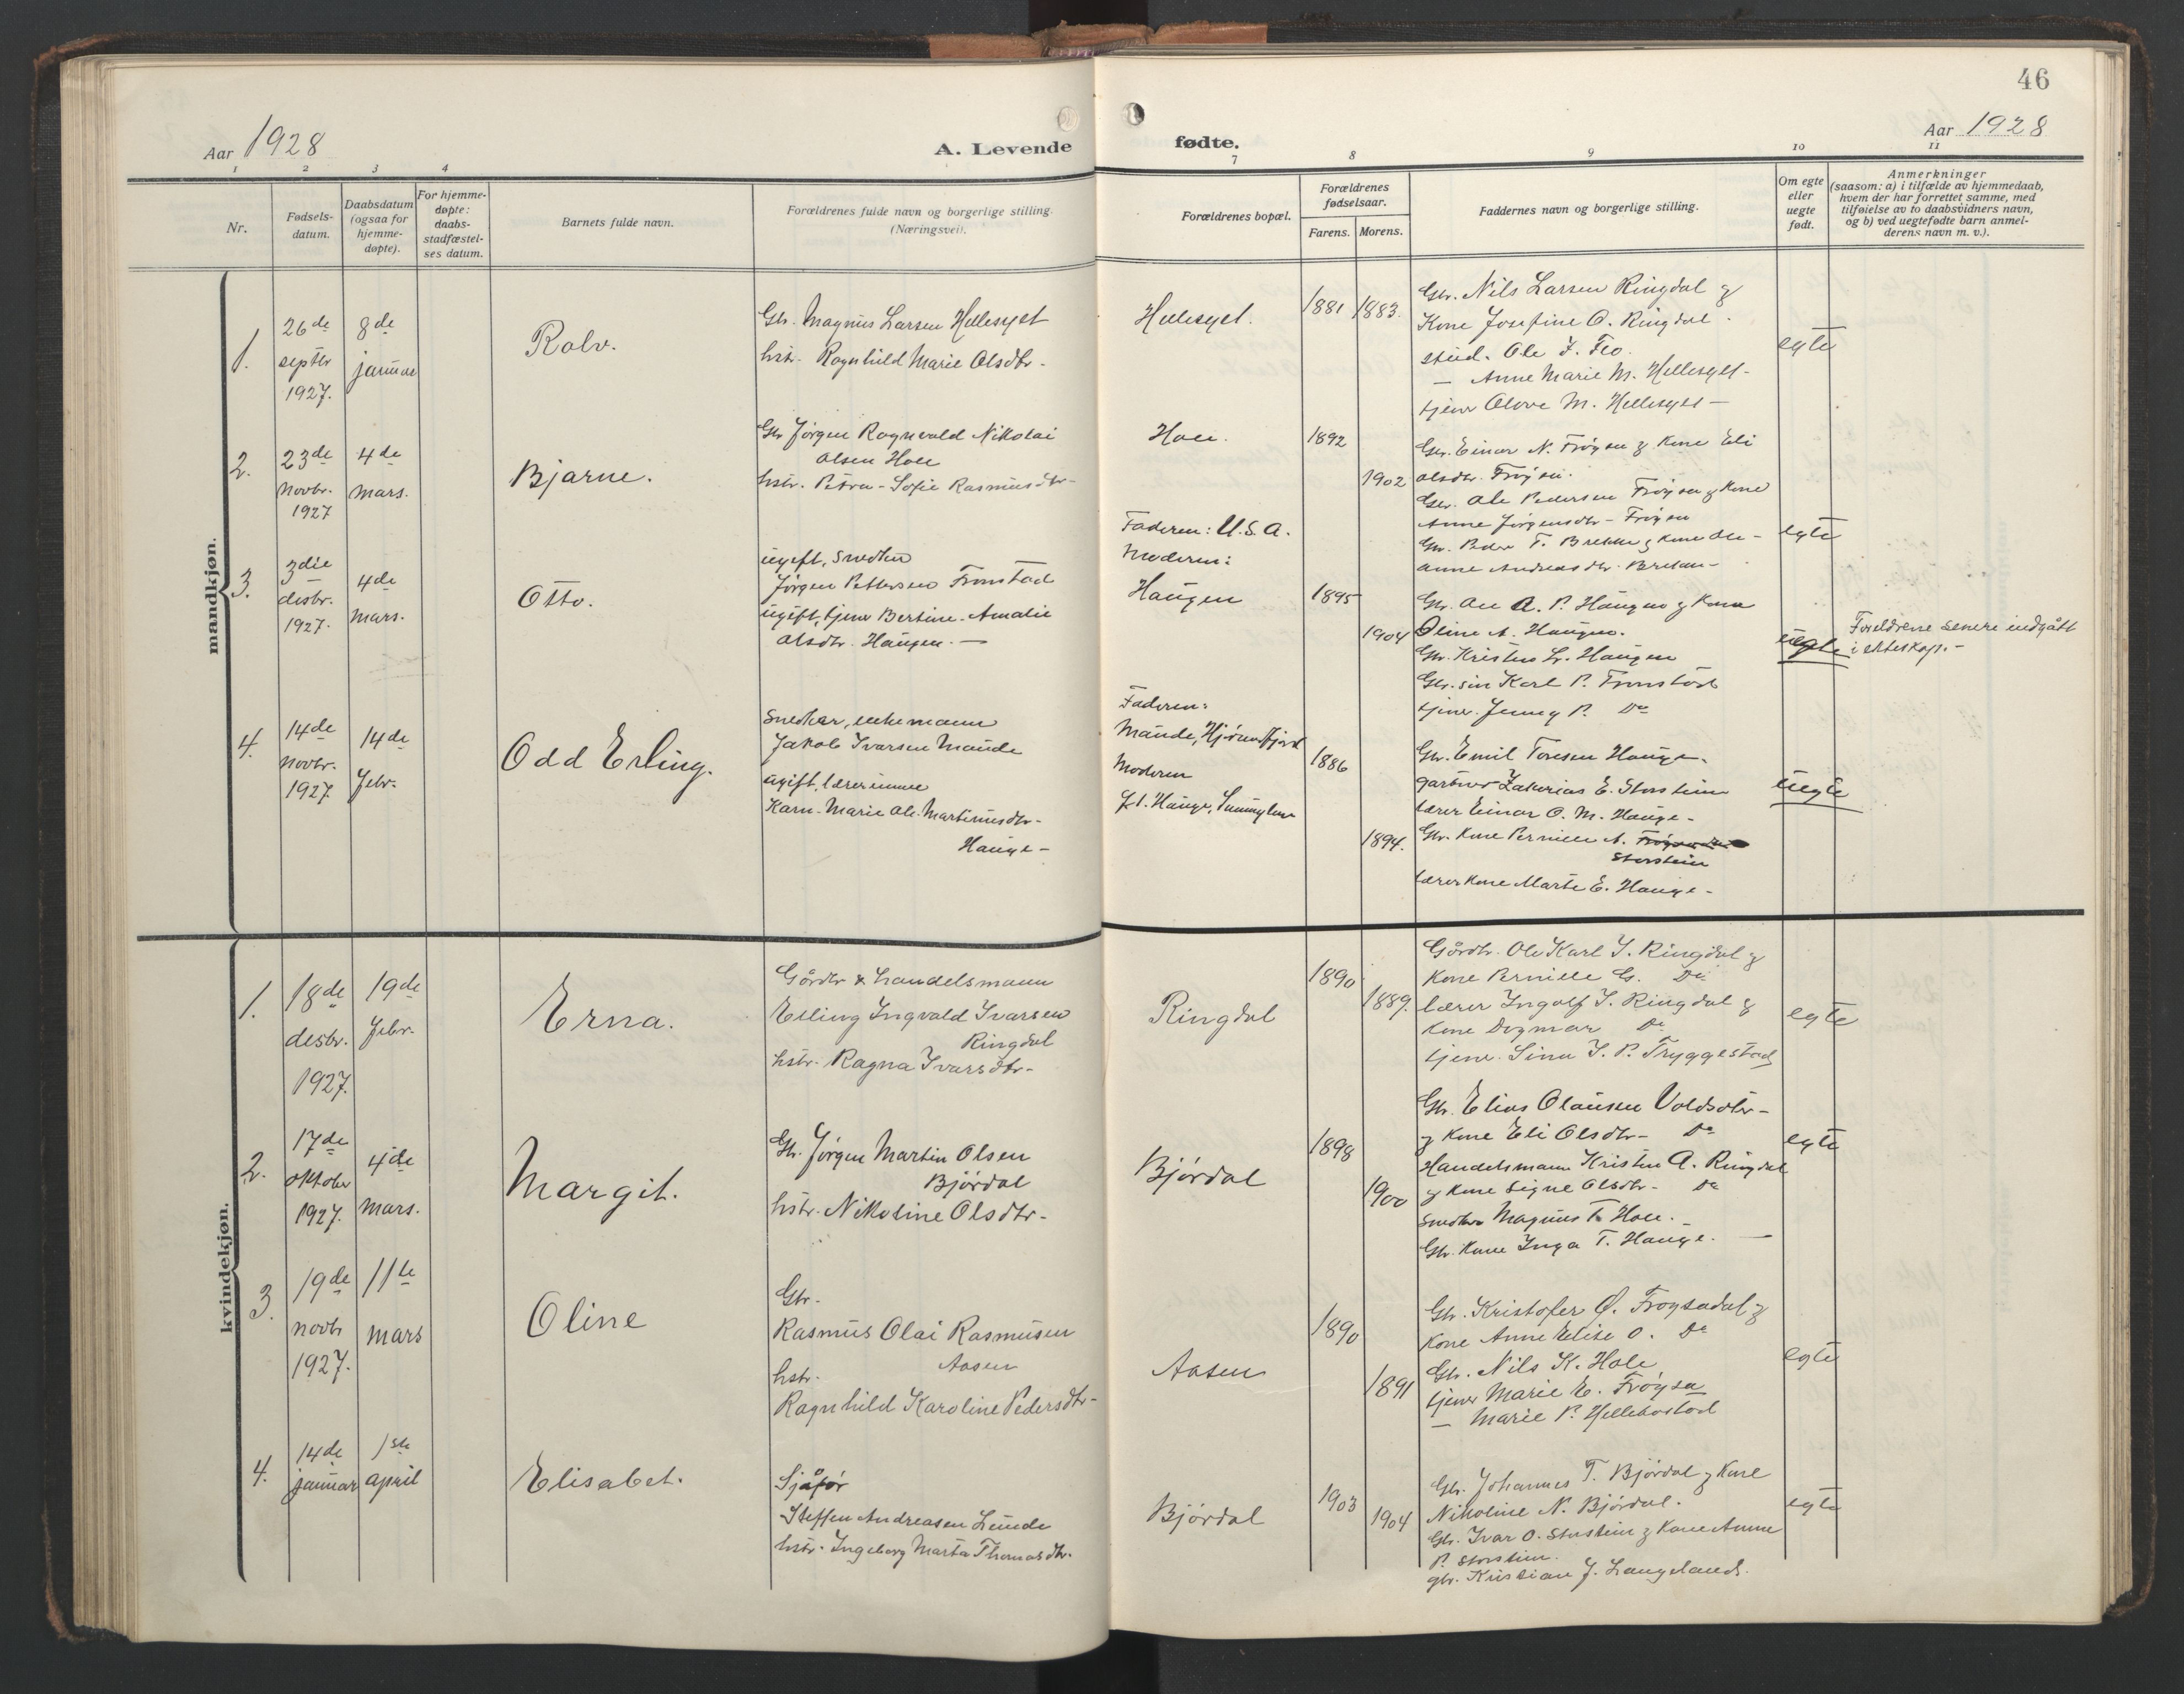 46
Aar 1928
A. Levende
fødte.
Aar 1928
1 2 3 4
7 8 9 10 11
Nr.
Fødsels-
datum.
Daabsdatum
(ogsaa for
hjemme-
døpte).
For hjemme-
døpte:
daabs-
stadfæstel-
ses datum.
Barnets fulde navn.
Forældrenes fulde navn og borgerlige stilling.
(Næringsvei).
Forældrenes bopæl.
Forældrenes
fødselsaar.
Farens. Morens.
Faddernes navn og borgerlige stilling.
Om egte
eller
uegte
født.
Anmerkninger
(saasom: a) i tilfælde av hjemmedaab,
hvem der har forrettet samme, med
tilføielse av to daabsvidners navn,
og b) ved uegtefødte barn anmel-
derens navn m. v.).
mandkjøn.
1.
26de
septbr
1927.
8de
januar
Rolv.
Gbr. Magnus Larsen Hellesylt
hstr. Ragnhild Marie Olsdtr.
Hellesylt.
1881 1883.
Gbr. Nils Larsen Ringdal &
Kone Josefine O. Ringdal.
stud. Ole J. Flo.
— Anne Marie M. Hellesylt-
tjener Olove M. Hellesylt —
egte
2.
23de
novbr.
1927
4de
mars.
Bjarne.
Gbr Jørgen Ragnvald Nikolai
Olsen Hole
hstr. Petra-Sofie Rasmusdtr-
Hole.
1892
1902
Gbr. Einar N. Frøysa & Kone Eli
Olsdtr. Frøysa.
Gbr. Ole Pedersen Frøysa & Kone
Anne Jørgensdtr- Frøysa
Gbr. Peder T. Brekke & Kone Ole-
Anne Andreasdtr. Brekke-
egte
3.
3die
desbr.
1927.
4de
mars.
Otto.
ugift, snedker
Jørgen Pettersen Tronstad
ugift, tjener Bertine-Amalie
Olsdtr. Haugen. —
Faderen: U.S.A.
Moderen:
Haugen
1895
1904
Gbr. Ole A. P. Haugen & Kone
Oline A. Haugen.
Gbr. Kristen L. Haugen
Gbr. søn Karl P. Tronstad
tjener. Jenny P. Do
uegte
Foreldrene senere indgått
i ekteskap. -
4.
14de
novbr.
1927.
14de
febr.
Odd Erling.
Snedker, enkemann
Jakob Ivarsen Maude
ugift, lærerinne
Karn-Marie Ole-Martinusdtr-
Hauge-
Faderen:
Maude, Hjørundfjord
Moderen
Hauge, Sunnylven
1886
1894.
Gbr. Emil Toresen Hauge.
gartner Zakarias E. Storstein
lærer Einar O. M. Hauge-
Gbr. Kone Pernille A.
Storstein
lærerkone Marte E. Hauge-
uegte
kvindekjøn.
1.
18de
desbr.
1927.
19de
febr.
Erna.
Gårdbr & handelsmann
Elling Ingvald Ivarsen
Ringdal
hstr. Ragna Ivarsdtr-
Ringdal
1890
1889.
Gårdbr. Ole Karl I. Ringdal &
Kone Pernille G. Do
lærer Ingolf I. Ringdal &
Kone Dagmar Do
tjener. Sina I. P. Tryggestad
egte
2.
17de
oktober
1927.
4de
mars.
Margit.
Gbr. Jørgen Martin Olsen
Bjørdal
hstr. Nikoline Olsdtr-
Bjørdal
1898
1900
Gbr. Elias Olausen Voldsdtr-
& Kone Eli Olsdtr- Do
Handelsmann Kristen A. Ringdal
& Kone Signe Olsdtr- Do
snedker Magnus T. Hole. -
Gbr. Kone Inga T. Hauge. —
egte
3.
19de
novbr
1927.
11te
mars
Oline
Gbr.
Rasmus Olai Rasmusen
Aasen
hstr.
Ragnhild Karoline Pedersdtr-
Aasen
1890
1891
Gbr. Kristofer Ø. Frøysadal &
Kone Anne Elise O. Do
Gbr. Nils K. Hole
tjener Marie E. Frøysa
— Marie P. Hellebostad
egte
4.
14de
januar
1ste
april
Elisabet.
Sjåfør
Steffen Andreasen Lunde
hstr. Ingeborg Marta Thomasdtr.
Bjørdal
1903
1904
Gbr. Johannes T. Bjørdal & Kone
Nikoline N. Bjørdal.
Gbr. Ivar O. Storstein & Kone Anne
P. Storstein.
gbr. Kristian J. Langeland.
egte